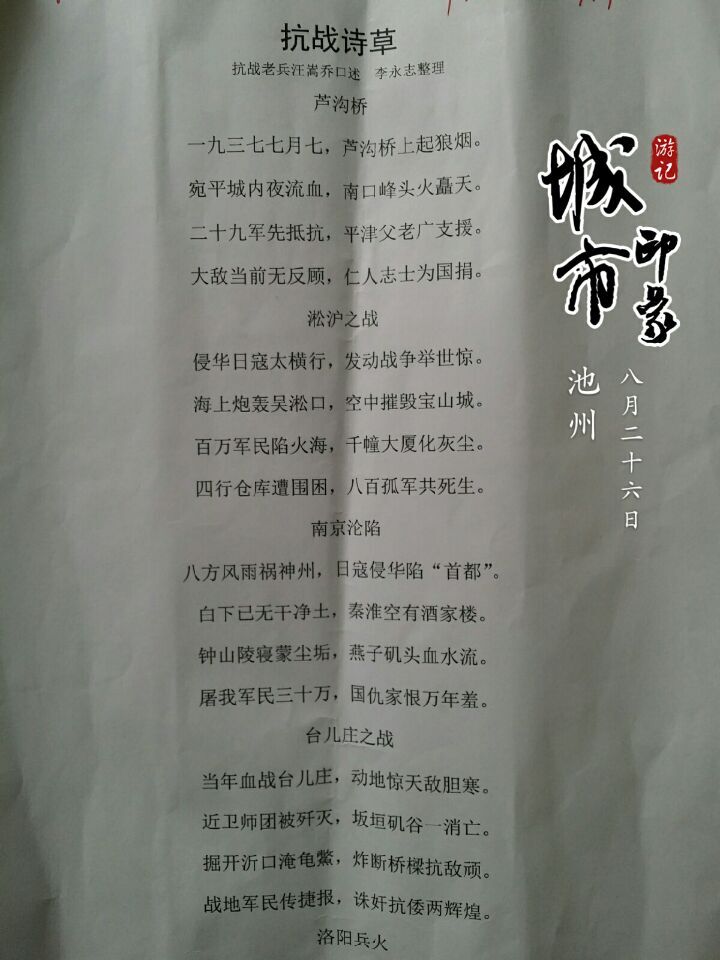 抗战诗草
抗战老兵汪嵩乔口述 李永志整理
芦沟桥
一九三七七月七，芦沟桥上起狼烟。
宛平城内夜流血，南口峰头火矗天。
二十九军先抵抗，平津父老广支援。
大敌当前无反顾，仁人志士为国捐。
淞沪之战
侵华日寇太横行，发动战争举世惊。
海上炮轰吴淞口，空中摧毁宝山城。
百万军民陷火海，千幢大厦化灰尘。
四行仓库遭围困，八百孤军共死生。
南京沦陷
八方风雨祸神州，日寇侵华陷“首都”。
白下已无干净土，秦淮空有酒家楼。
钟山陵寝蒙尘垢，燕子矶头血水流。
屠我军民三十万，国仇家恨万年羞。
台儿庄之战
当年血战台儿庄，动地惊天敌胆寒。
近卫师团被歼灭，坂垣矶谷一消亡。
掘开沂口淹龟鳖，炸断桥樑抗敌顽。
战地军民传捷报，诛奸抗倭两辉煌。
洛阳兵火
城市印象
游记
池州
八月二十六日